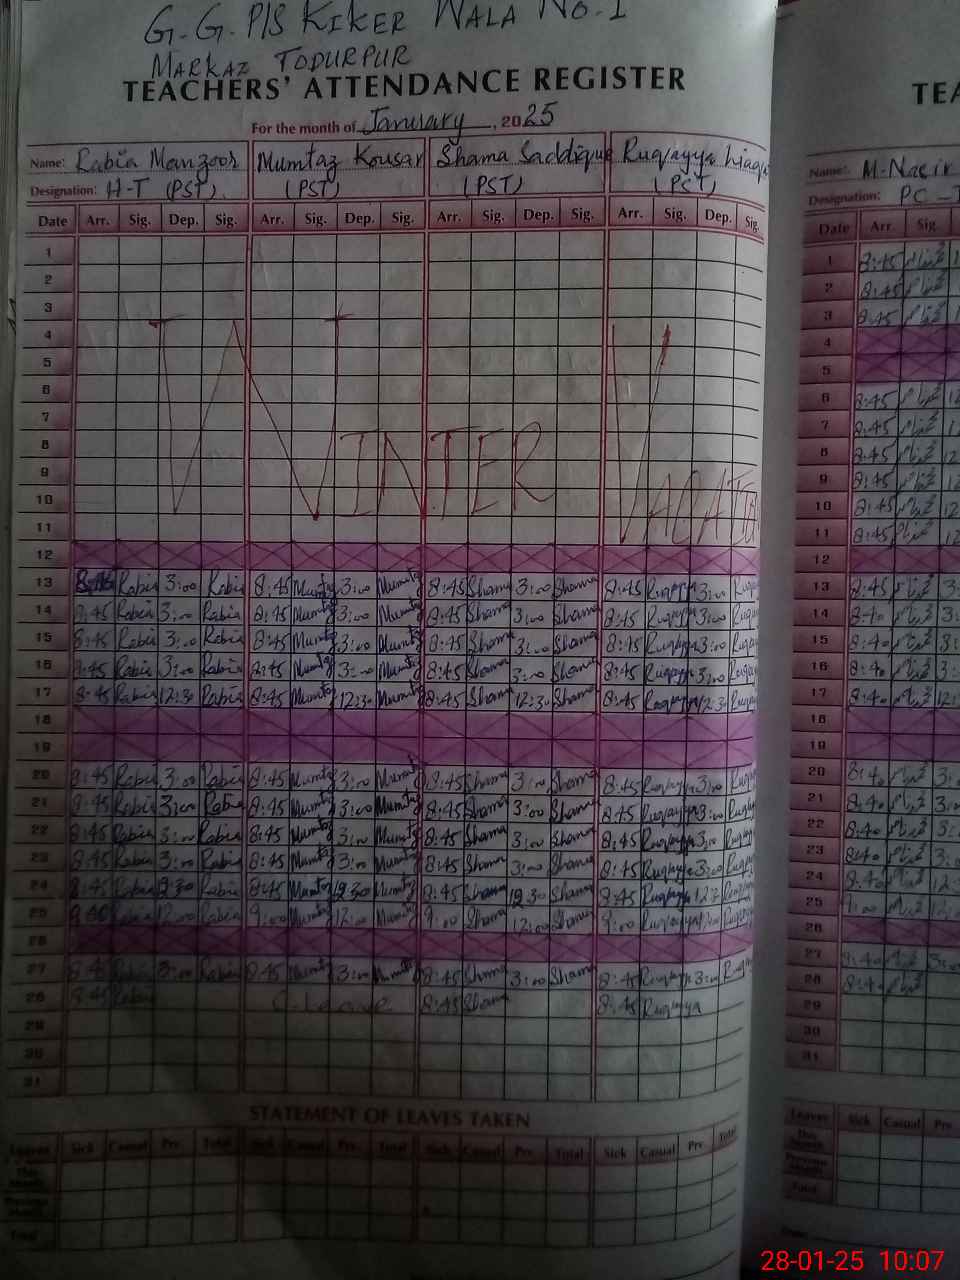 G.G.P/S KIKER WALA NO.1
MARKAZ TODURPUR
TEACHERS' ATTENDANCE REGISTER
For the month of January, 2025
Name: Rabia Manzoor Mumtaz Kousar Shama Saddique Ruqayya
Designation: H-T (PST) (PST) (PST) (PST)
Date Arr. Sig. Dep. Sig. Arr. Sig. Dep. Sig. Arr. Sig. Dep. Sig. Arr. Sig. Dep. Sig.
1
2
3
4
5
6
7
8
9
10
11
WINTER VACATION
12
13 8:45 Rabia 3:00 Rabia 8:45 Mumtaz 3:00 Mumtaz 8:45 Shama 3:00 Shama 8:45 Ruqayya 3:00 Ruqay
14 8:45 Rabia 3:00 Rabia 8:45 Mumtaz 3:00 Mumtaz 8:45 Shama 3:00 Shama 8:45 Ruqayya 3:00 Ruqay
15 8:45 Rabia 3:00 Rabia 8:45 Mumtaz 3:00 Mumtaz 8:45 Shama 3:00 Shama 8:45 Ruqayya 3:00 Ruqay
16 8:45 Rabia 3:00 Rabia 8:45 Mumtaz 3:00 Mumtaz 8:45 Shama 3:00 Shama 8:45 Ruqayya 3:00 Ruqay
17 8:45 Rabia 12:30 Rabia 8:45 Mumtaz 12:30 Mumtaz 8:45 Shama 12:30 Shama 8:45 Ruqayya 12:30 Ruqay
18
19
20 8:45 Rabia 3:00 Rabia 8:45 Mumtaz 3:00 Mumtaz 8:45 Shama 3:00 Shama 8:45 Ruqayya 3:00 Ruqay
21 8:45 Rabia 3:00 Rabia 8:45 Mumtaz 3:00 Mumtaz 8:45 Shama 3:00 Shama 8:45 Ruqayya 3:00 Ruqay
22 8:45 Rabia 3:00 Rabia 8:45 Mumtaz 3:00 Mumtaz 8:45 Shama 3:00 Shama 8:45 Ruqayya 3:00 Ruqay
23 8:45 Rabia 3:00 Rabia 8:45 Mumtaz 3:00 Mumtaz 8:45 Shama 3:00 Shama 8:45 Ruqayya 3:00 Ruqay
24 8:45 Rabia 12:30 Rabia 8:45 Mumtaz 12:30 Mumtaz 8:45 Shama 12:30 Shama 8:45 Ruqayya 12:30 Ruqay
25 9:00 Rabia 12:00 Rabia 9:00 Mumtaz 12:00 Mumtaz 9:00 Shama 12:00 Shama 9:00 Ruqayya Ruqay
26
27 8:45 Rabia 3:00 Rabia 8:45 Mumtaz 3:00 Mumtaz 8:45 Shama 3:00 Shama 8:45 Ruqayya 3:00 Ruqay
28 8:45 Rabia C.Leave 8:45 Shama 8:45 Ruqayya
29
30
31
STATEMENT OF LEAVES TAKEN
Leaves Sick Casual Prv. Total Sick Casual Prv. Total Sick Casual Prv. Total Sick Casual Prv. Total
This Month
Previous Month
Total
TEA
Name: M.Nasir
Designation: PC
Date Arr. Sig.
1 8:45
2 8:45
3 8:45
4
5
6 8:45
7 8:45
8 8:45
9 8:45
10 8:45
11 8:45
12
13 8:45
14 8:40
15 8:40
16 8:40
17 8:40
18
19
20 8:40
21 8:40
22 8:40
23 8:40
24 8:40
25 9:00
26
27 8:40
28 8:40
29
30
31
Leaves Sick Casual Prv
This Month
Previous Month
Total
28-01-25 10:07